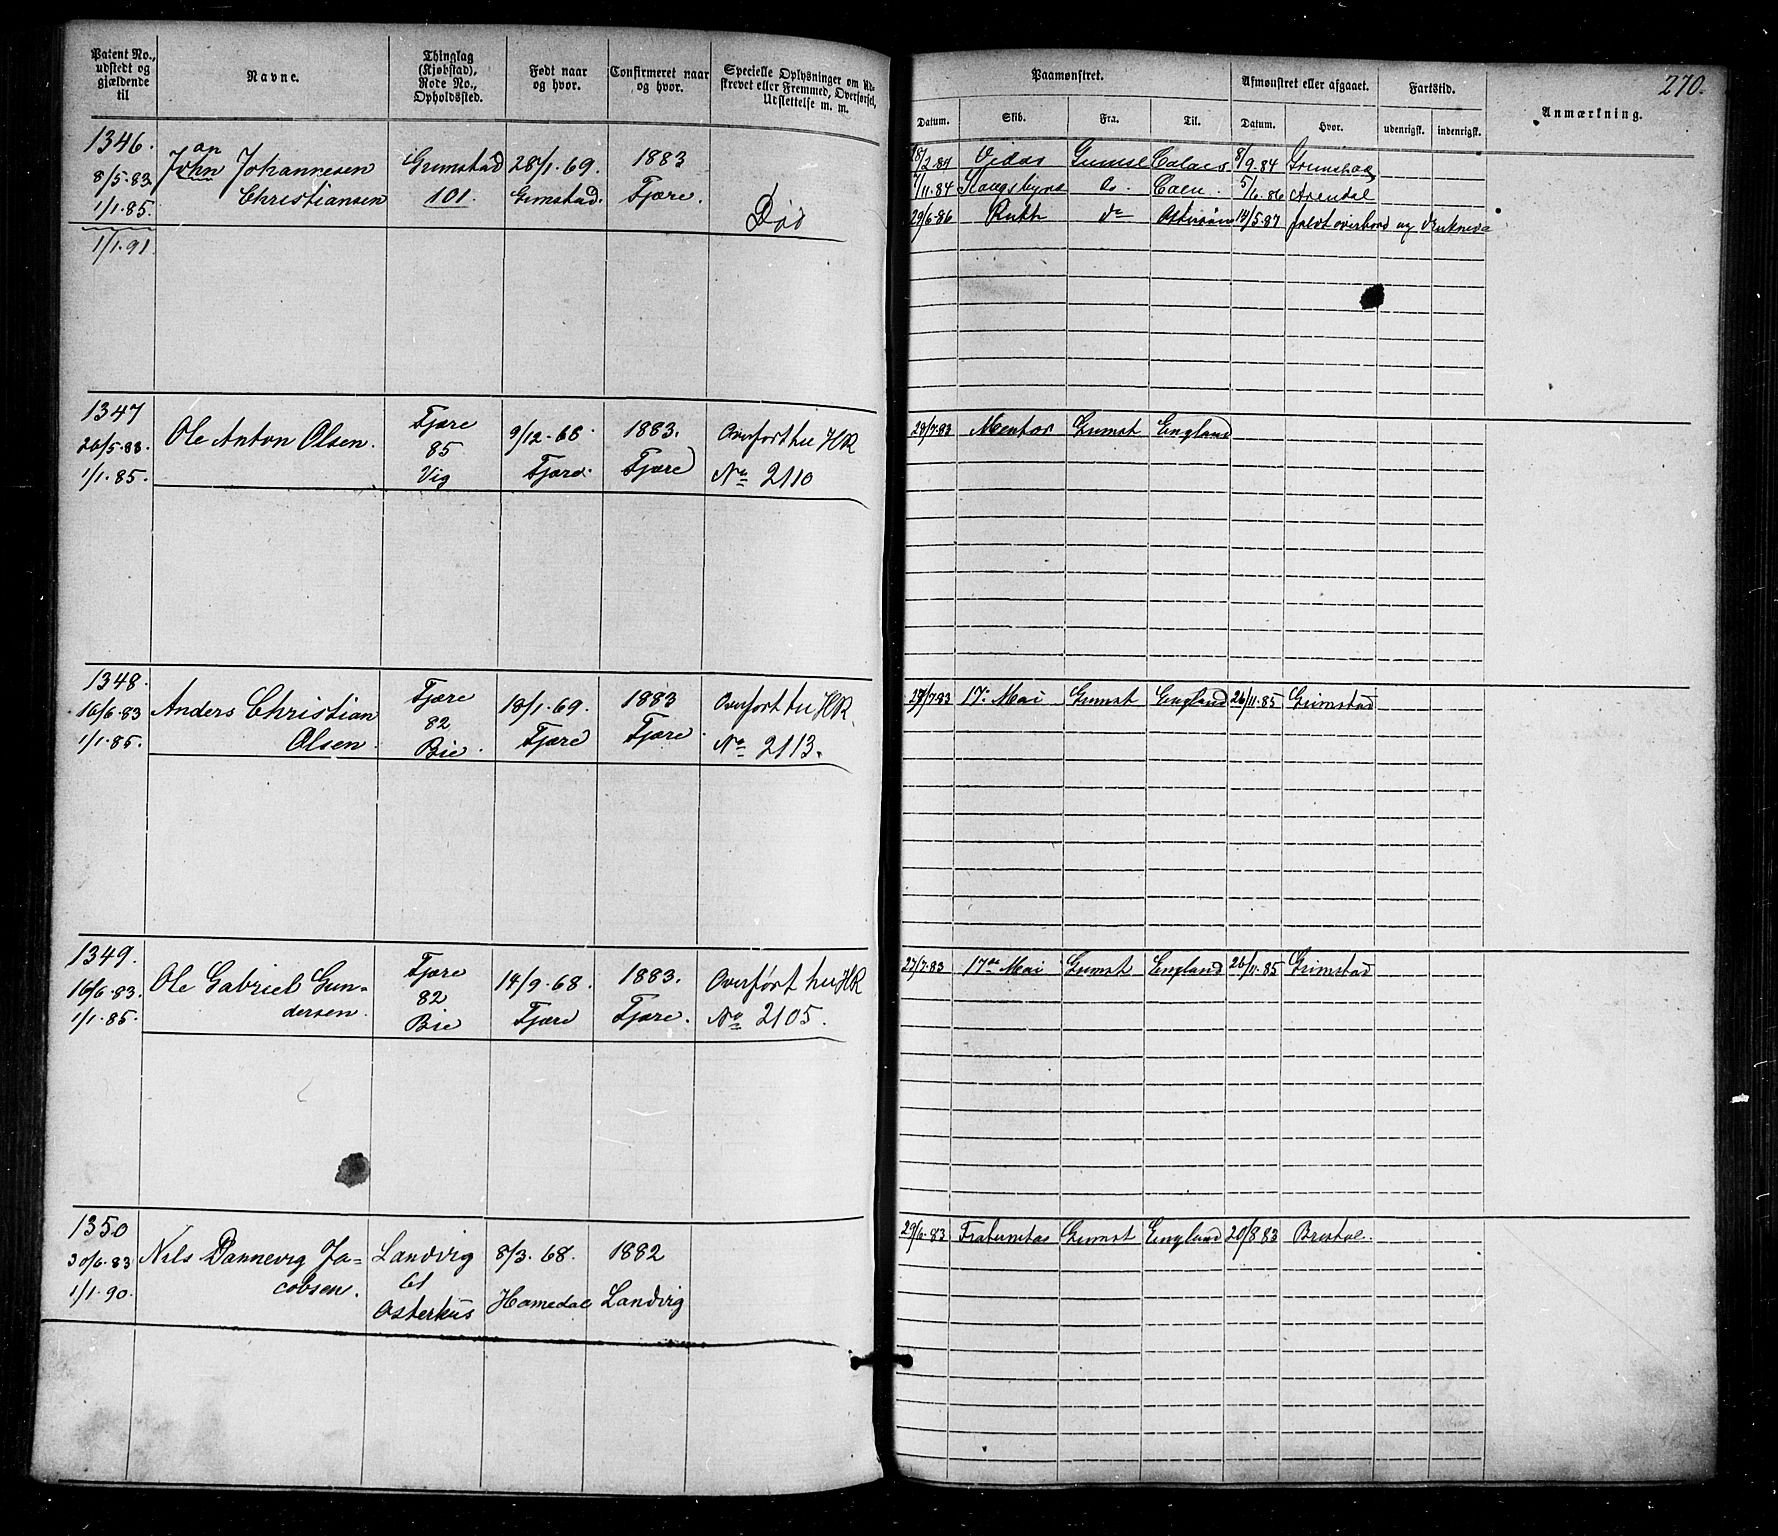 270.
Patent No., udstedt og gjældende til
Navne.
Thinglag (Kjøbstad), Rode No., Opholdssted.
Født naar og hvor.
Confirmeret naar og hvor.
Specielle Oplysninger om Ud-
skrevet eller Fremmed, Overførsel,
Udslettelse m. m.
Paamønstret.
Afmønstret eller afgaaet.
Fartstid.
Anmærkning.
Datum. Skib. Fra. Til. Datum. Hvor. udenrigsk. indenrigsk.
1346.
8/5.83
1/1.85.
1/1.91
an
John Johannesen
Christiansen
Grimstad
101.
28/1.69.
Grimstad.
1883
Fjære.
Død
18/2.84 Vidar Grimst Calais 8/9.84 Grimstad
7/11.84 do. Caen. 5/6.86 Arendal
29/6.86 Ruth do Østersøen 14/5.87 faldt overbord og druknede
1347
26/5.83.
1/1.85.
Ole Anton Olsen.
Fjære
85
Vig
9/12.68.
Fjære.
1883.
Fjære
Overført til HR
No 2110
28/7.83 Mentor Grimst England
1348.
16/6.83
1/1.85.
Anders Christian
Olsen.
Fjære
82
Bie.
18/1.69.
Fjære
1883
Fjære.
Overført til HR.
No 2113.
27/7.83 17. Mai Grimst England 26/11.85 Grimstad
1349.
16/6.83.
1/1.85.
Ole Gabriel Gun-
dersen.
Fjære
82
Bie
14/9.68.
Fjære
1883.
Fjære.
Overført til HR
No 2105.
27/7.83 17de Mai Grimst England 26/11.85 Grimstad
1350
30/6.83
1/1.90.
Nils Dannevig Ja-
cobsen.
Landvig
61
Østerhus
8/3.68.
Homedal
1882
Landvig
29/6.83 Fraternitas Grimst England 20/8.83 Bristol.